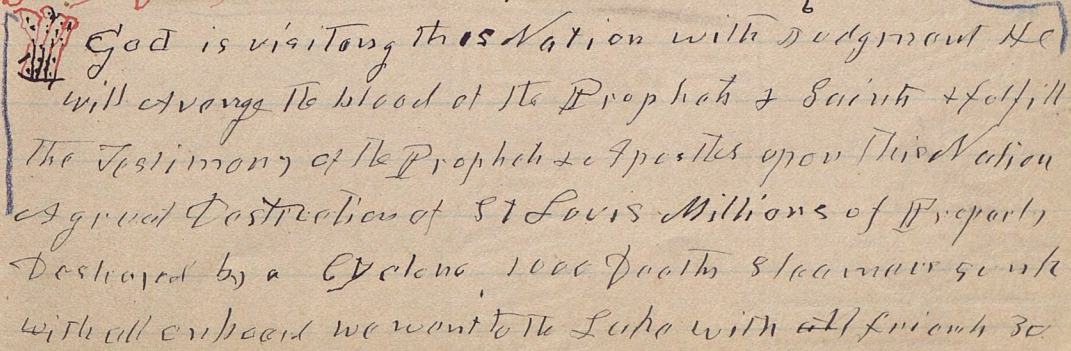 God is visiting this Nation with Judgment He
will Avenge the blood of the Prophets & Saints & fulfill
the Testimony of the Prophets & Apostles upon this Nation
A great Destruction of St Louis Millions of Property
Destroyed by a Cyclone 1000 Deaths Steamers sunk
with all on board we went to the Lake with all friends 30